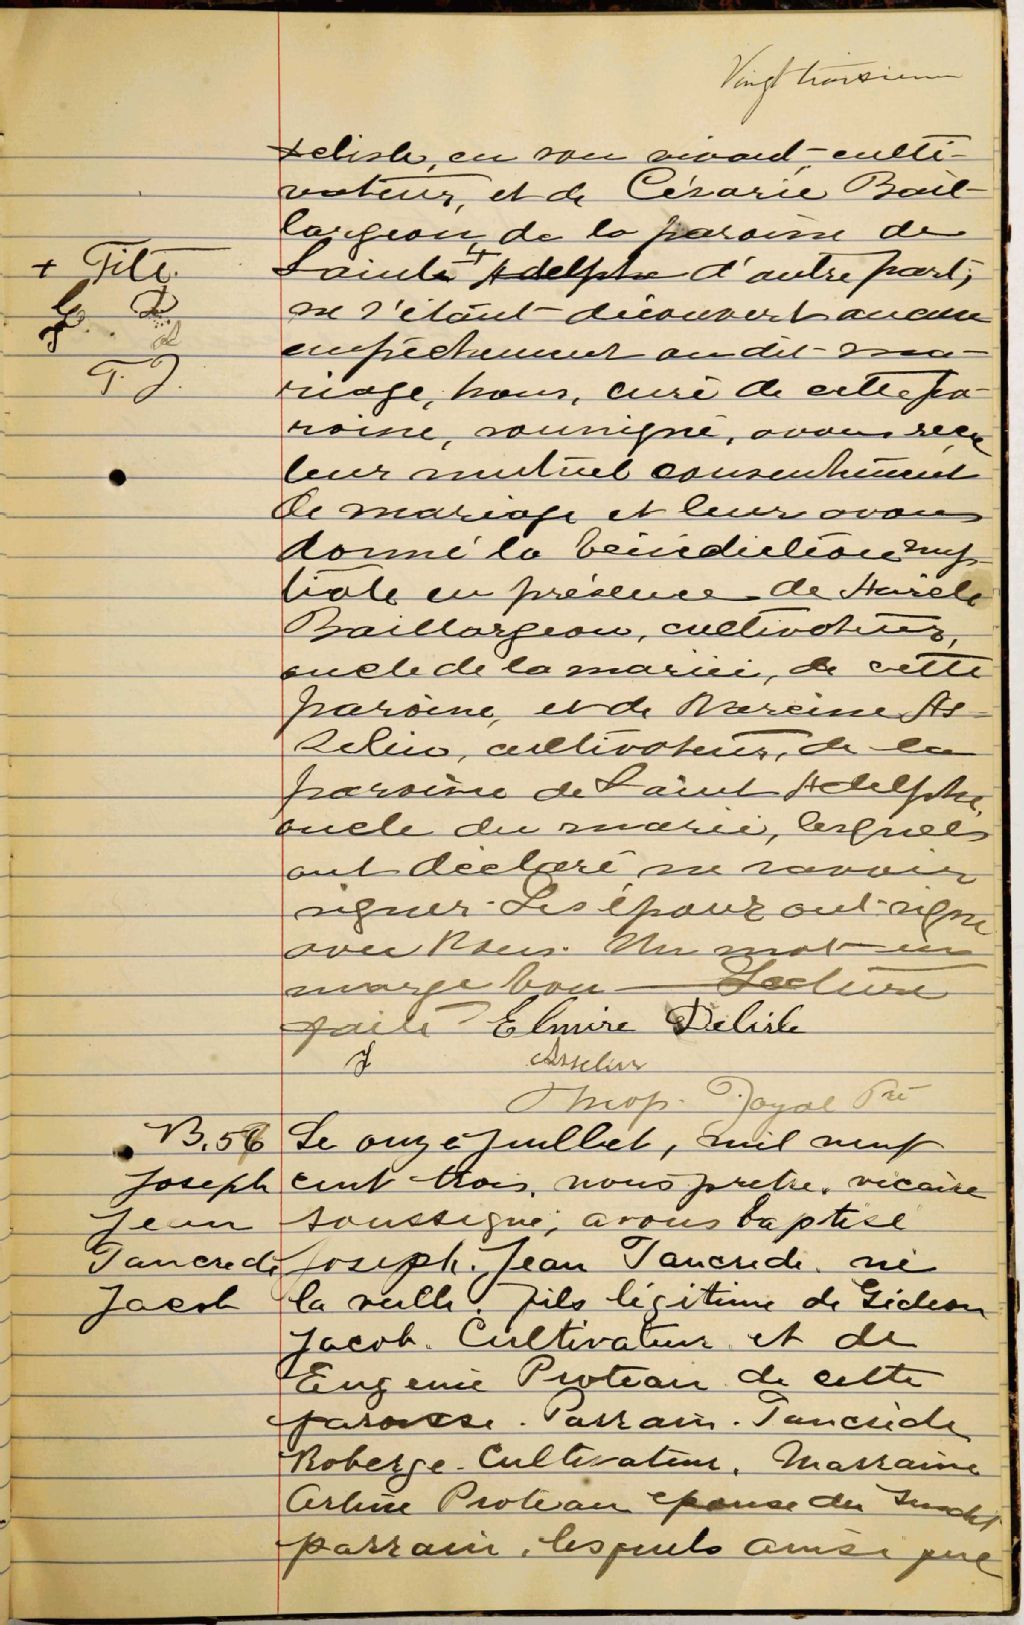 Vingt troisième
Delisle, en son vivant culti-
vateur, et de Césarie Bail-
largeon, de la paroisse de
Sainte + Adelphe d'autre part;
ne s'étant découvert aucun
empêchement au dit ma-
riage, nous, curé de cette pa-
roisse, soussigné, avons reçu
leur mutuel consentement
de mariage et leur avons
donné la bénédiction nup-
tiale en présence de
Baillargeon, cultivateur,
oncle de la mariée, de cette
paroisse, et de Narcisse As-
selin, cultivateur, de la
paroisse de Saint Adelphe,
oncle du marié, lesquels
ont déclaré ne savoir
signer. Les époux ont signé
avec Nous. Un mot en
marge bon — Lecture
faite Elmire Delisle
J Asselin
Thop. Joyal Ptr
+ Tite.
T. J.
B. 56
Joseph
Jean
Tancrede
Jacob
Le onze Juillet, mil neuf
cent trois, nous pretre, vicaire
soussigné, avons baptisé
Joseph. Jean Tancrede. né
la veille. fils légitime de Gideon
Jacob. Cultivateur et de
Eugenie Proteau de cette
paroisse. Parrain. Tancrède
Roberge. Cultivateur. Marraine
Proteau epouse du susdit
parrain, lesquels ainsi que